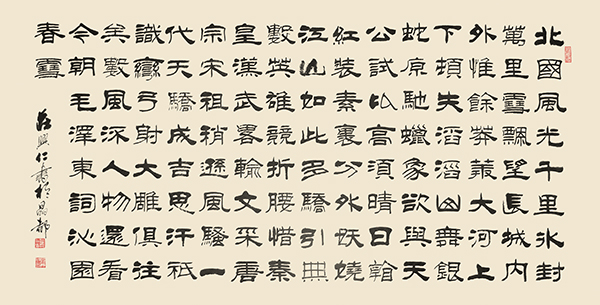 北國風光千里氷封
萬里雪飄望長城内
外惟餘莽莽大河上
下頓失滔滔山舞銀
蛇原馳蠟象欲與天
公試比高須晴日看
紅裝素裹分外妖嬈
江山如此多驕引無
數英雄競折腰惜秦
皇漢武略輸文采唐
宗宋祖稍遜風騷一
代天驕成吉思汗祇
識彎弓射大雕俱往
矣數風流人物還看
今朝毛澤東詞沁園
春雪
興仁書於昌都